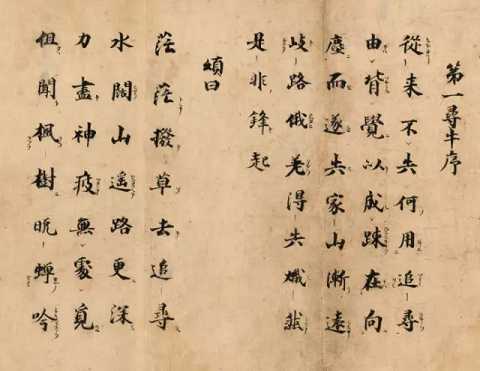 第一尋牛序
從来不失何用追尋
由背覺以成踈在向
塵而遂失家山漸遠
岐路俄差得失熾然
是非鋒起
頌曰
茫茫撥草去追尋
水闊山遥路更深
力盡神疲無處覓
但聞楓樹晩蟬吟